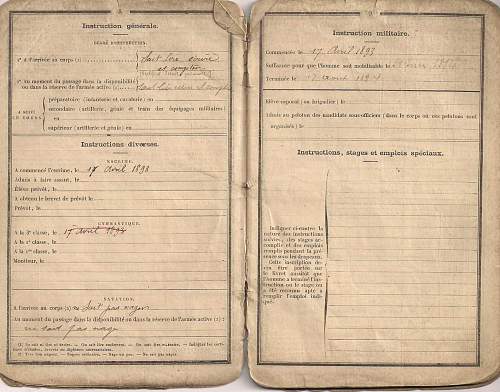 Instruction générale.
DEGRÉ D'INSTRUCTION.
1° A l'arrivée au corps (1) : Sait lire écrire
et compter
2° Au moment du passage dans la disponibilité
ou dans la réserve de l'armée active (1) : Sait lire écrire et compter
A SUIVI
UN COURS
préparatoire (infanterie et cavalerie) en
secondaire (artillerie, génie et train des équipages militaires)
en
supérieur (artillerie et génie) en
Instructions diverses.
ESCRIME.
A commencé l'escrime, le 17 avril 1893
Admis à faire assaut, le
Élève prévôt, le
A obtenu le brevet de prévôt le
Prévôt, le
GYMNASTIQUE.
A la 3e classe, le 17 avril 1894
A la 2e classe, le
A la 1re classe, le
Moniteur, le
NATATION.
A l'arrivée au corps (2) ne Sait pas nager
Au moment du passage dans la disponibilité ou dans la réserve de l'armée active (2) :
ne sait pas nager
Instruction militaire.
Commencée le 17 Avril 1893
Suffisante pour que l'homme soit mobilisable le
Terminée le
Élève caporal (ou brigadier) le
Admis au peloton des candidats sous-officiers (dans le corps où ces pelotons sont
organisés) le
Instructions, stages et emplois spéciaux.
Indiquer ci-contre la
nature des instructions
suivies, des stages
accomplis et des emplois
remplis pendant la présence
sous les drapeaux.
Cette inscription
devra être portée sur
le livret aussitôt que
l'homme a terminé l'instruction
ou le stage ou
a été reconnu apte à
remplir l'emploi indiqué.